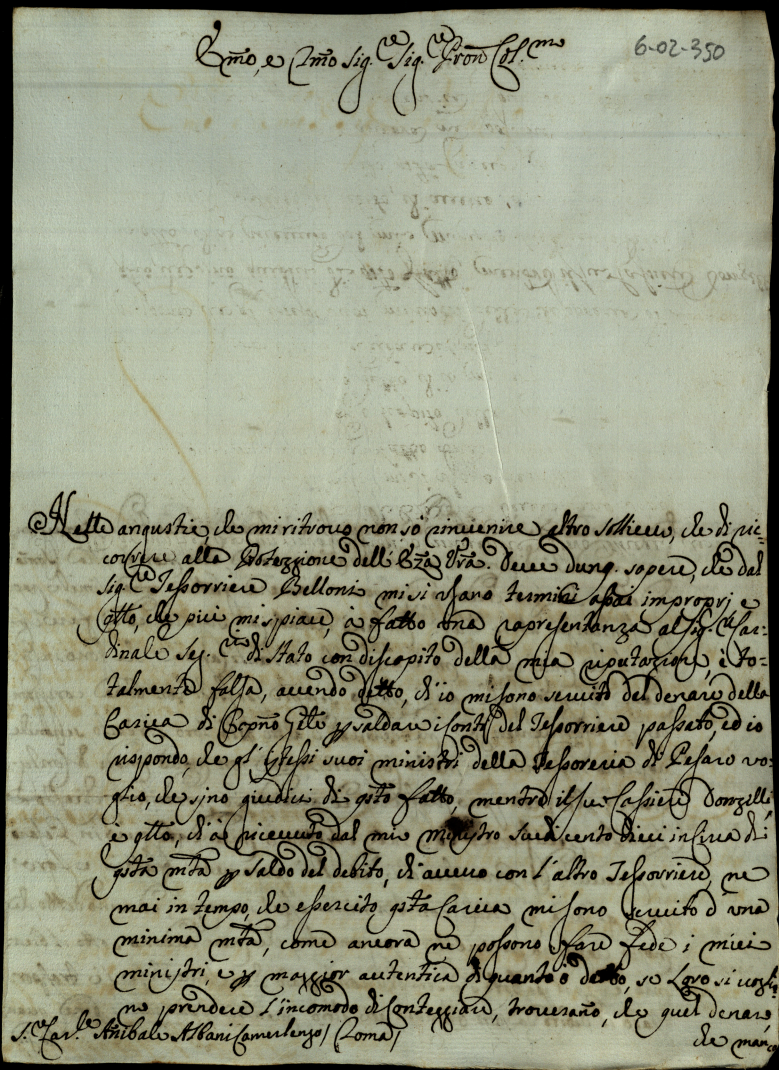 6-02-350
Emo, e Rmo Sig.re Sig.re Pron Col.mo
Nelle angustie, che mi ritrovo non sò rinvenire altro sollievo, che di ric=
correre alla Protezzione dell'Eza Vra. Deve dunq. sapere, che dal
Sig.re Tessorriere Belloni mi si usano termini assai improprj e
qllo, che più mi spiace, à fatto una rapresentanza al Sig.r Car=
dinale Seg.rio di Stato con discapito della mia riputazione, è to=
talmente falsa, avendo detto, ch'io mi sono servito del denaro della
Carica di Comp.o Gñle p saldare i conti del Tessorriere passato, ed io
rispondo, che gl'istessi suoi ministri della Tessoreria di Pesaro vo=
glio, che sino giudici di qsto fatto, mentre il suo Cassiere Donzelli
è qllo, ch'à ricevuto dal mio ministro scudi cento dieci in circa di
qsta mta p saldo del debito, ch'avevo con l'altro Tessorriere, ne
mai in tempo, che essercito qsta Carica mi sono servito d'una
minima mta, come ancora ne possono fare fede i miei
ministri, e p maggior autentica di quanto ò detto, se Loro si voglio
no prendere l'incomodo di Conteggiare, troverano, che quel denaro,
S.re Car.le Anibale Albani Camerlengo / Roma /
che manca